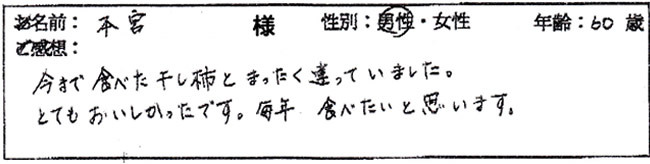 お名前：本宮 様 性別：男性・女性 年齢：60 歳
ご感想：
今まで食べた干し柿とまったく違っていました。
とてもおいしかったです。毎年 食べたいと思います。